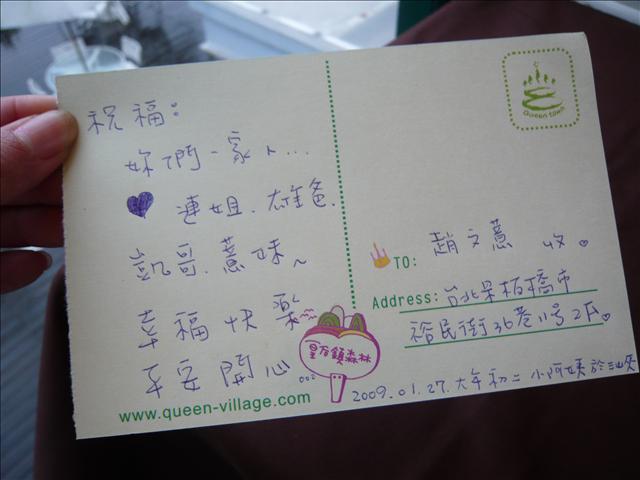 祝福:
妳們一家人...
連姐、雄爸、
凱哥、薏妹~
幸福快樂
平安開心
www.queen-village.com
Queen town
TO: 趙文薏 收。
Address: 台北縣板橋市
裕民街36巷11號2F。
皇后鎮森林
2009.01.27.大年初二 小阿姨 於